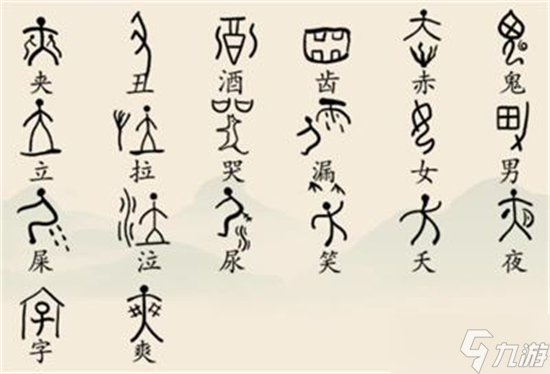 夹 丑 酒 齿 赤 鬼
立 拉 哭 漏 女 男
屎 泣 尿 笑 夭 夜
字 爽
九游